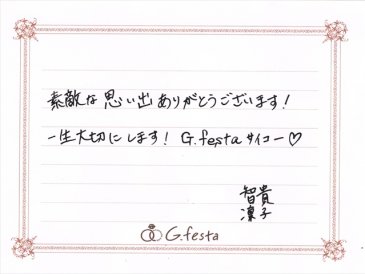 素敵な思い出ありがとうございます!
一生大切にします! G.festaサイコー♡
智貴
凜子
G.festa